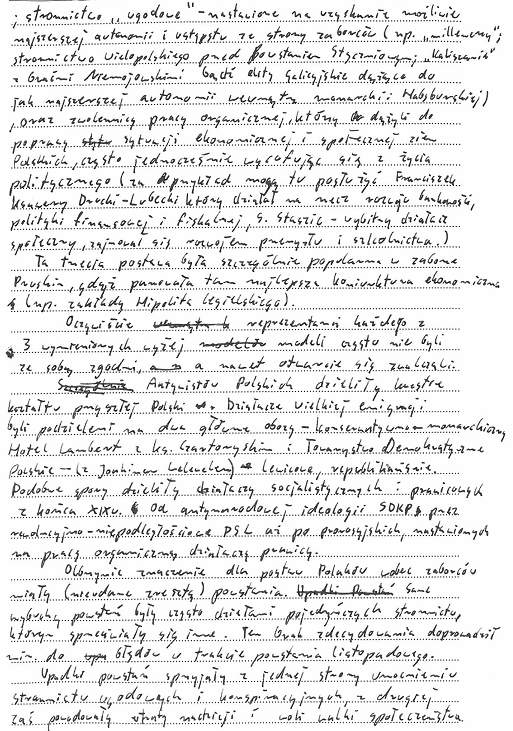 ; stronnictwo "ugodowe" - nastawione na uzyskanie możliwie
najszerszej autonomii i ustępstw ze strony zaborców (np. "millenerzy";
stronnictwo Wielopolskiego przed Powstaniem Styczniowym; "Kaliszanie"
z braćmi Niemojowskimi bądź elity Galicyjskie dążące do
jak najszerszej autonomii wewnątrz monarchii Habsburskiej)
, oraz zwolennicy pracy organicznej, którzy dążyli do
poprawy sytuacji ekonomicznej i społecznej ziem
Polskich, często jednocześnie wycofując się z życia
politycznego (za przykład mogą tu posłużyć Franciszek
Ksawery Drucki-Lubecki który działał na rzecz rozwoju bankowości,
polityki finansowej i fiskalnej, S. Staszic - wybitny działacz
społeczny, zajmował się rozwojem przemysłu i szkolnictwa.)
Ta trzecia postawa była szczególnie popularna w zaborze
Pruskim, gdyż panowała tam najlepsza koniunktura ekonomiczna
(np. zakłady Hipolita Cegielskiego).
Oczywiście reprezentanci każdego z
3 wymienionych wyżej modeli często nie byli
ze sobą zgodni, a nawet otwarcie się zwalczali.
Antagonistów Polskich dzieliły kwestie
kształtu przyszłej Polski. Działacze wielkiej emigracji
byli podzieleni na dwa główne obozy - konserwatywno-monarchiczny
Hotel Lambert z ks. Czartoryskim i Towarzystwo Demokratyczne
Polskie - (z Joachimem Lelewelem) lewicowe, republikańskie.
Podobne spory dzieliły działaczy socjalistycznych i prawicowych
z końca XIXw. Od antynarodowej ideologii SDKP, przez
rewolucyjno-niepodległościowe PSL aż po prorosyjskich, nastawionych
na pracę organiczną działaczy prawicy.
Olbrzymie znaczenie dla postaw Polaków wobec zaborców
miały (nieudane zresztą) powstania. Same
wybuchy powstań były często dziełami pojedynczych stronnictw,
którym sprzeciwiały się inne. Ten brak zdecydowania doprowadził
min. do błędów w trakcie powstania listopadowego.
Upadki powstań sprzyjały z jednej strony umocnieniu
stronnictw ugodowych i konspiracyjnych z drugiej
zaś powodowały utratę nadziei i woli walki społeczeństwa.